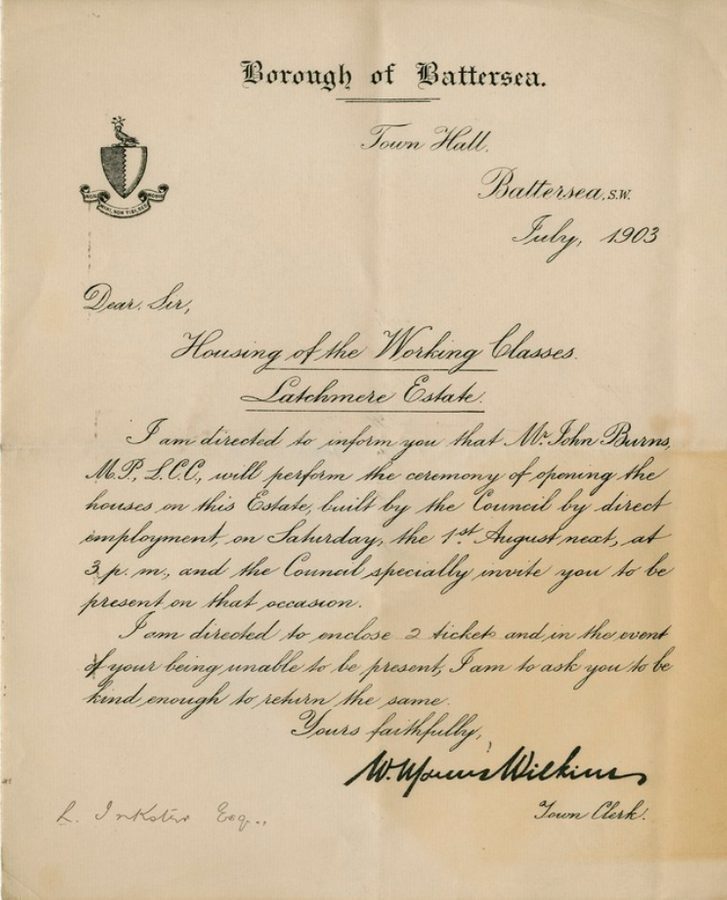 Borough of Battersea.
Town Hall.
Battersea, S.W.
July, 1903
NON MIHI, NON TIBI, SED NOBIS
Dear Sir,
Housing of the Working Classes.
Latchmere Estate.
I am directed to inform you that Mr. John Burns,
M.P., L.C.C., will perform the ceremony of opening the
houses on this Estate, built by the Council by direct
employment, on Saturday, the 1st August next, at
3 p.m., and the Council specially invite you to be
present on that occasion.
I am directed to enclose 2 tickets and, in the event
of your being unable to be present, I am to ask you to be
kind enough to return the same.
Yours faithfully,
W. Marcus Wilkins
Town Clerk.
L. Inkster Esq.,